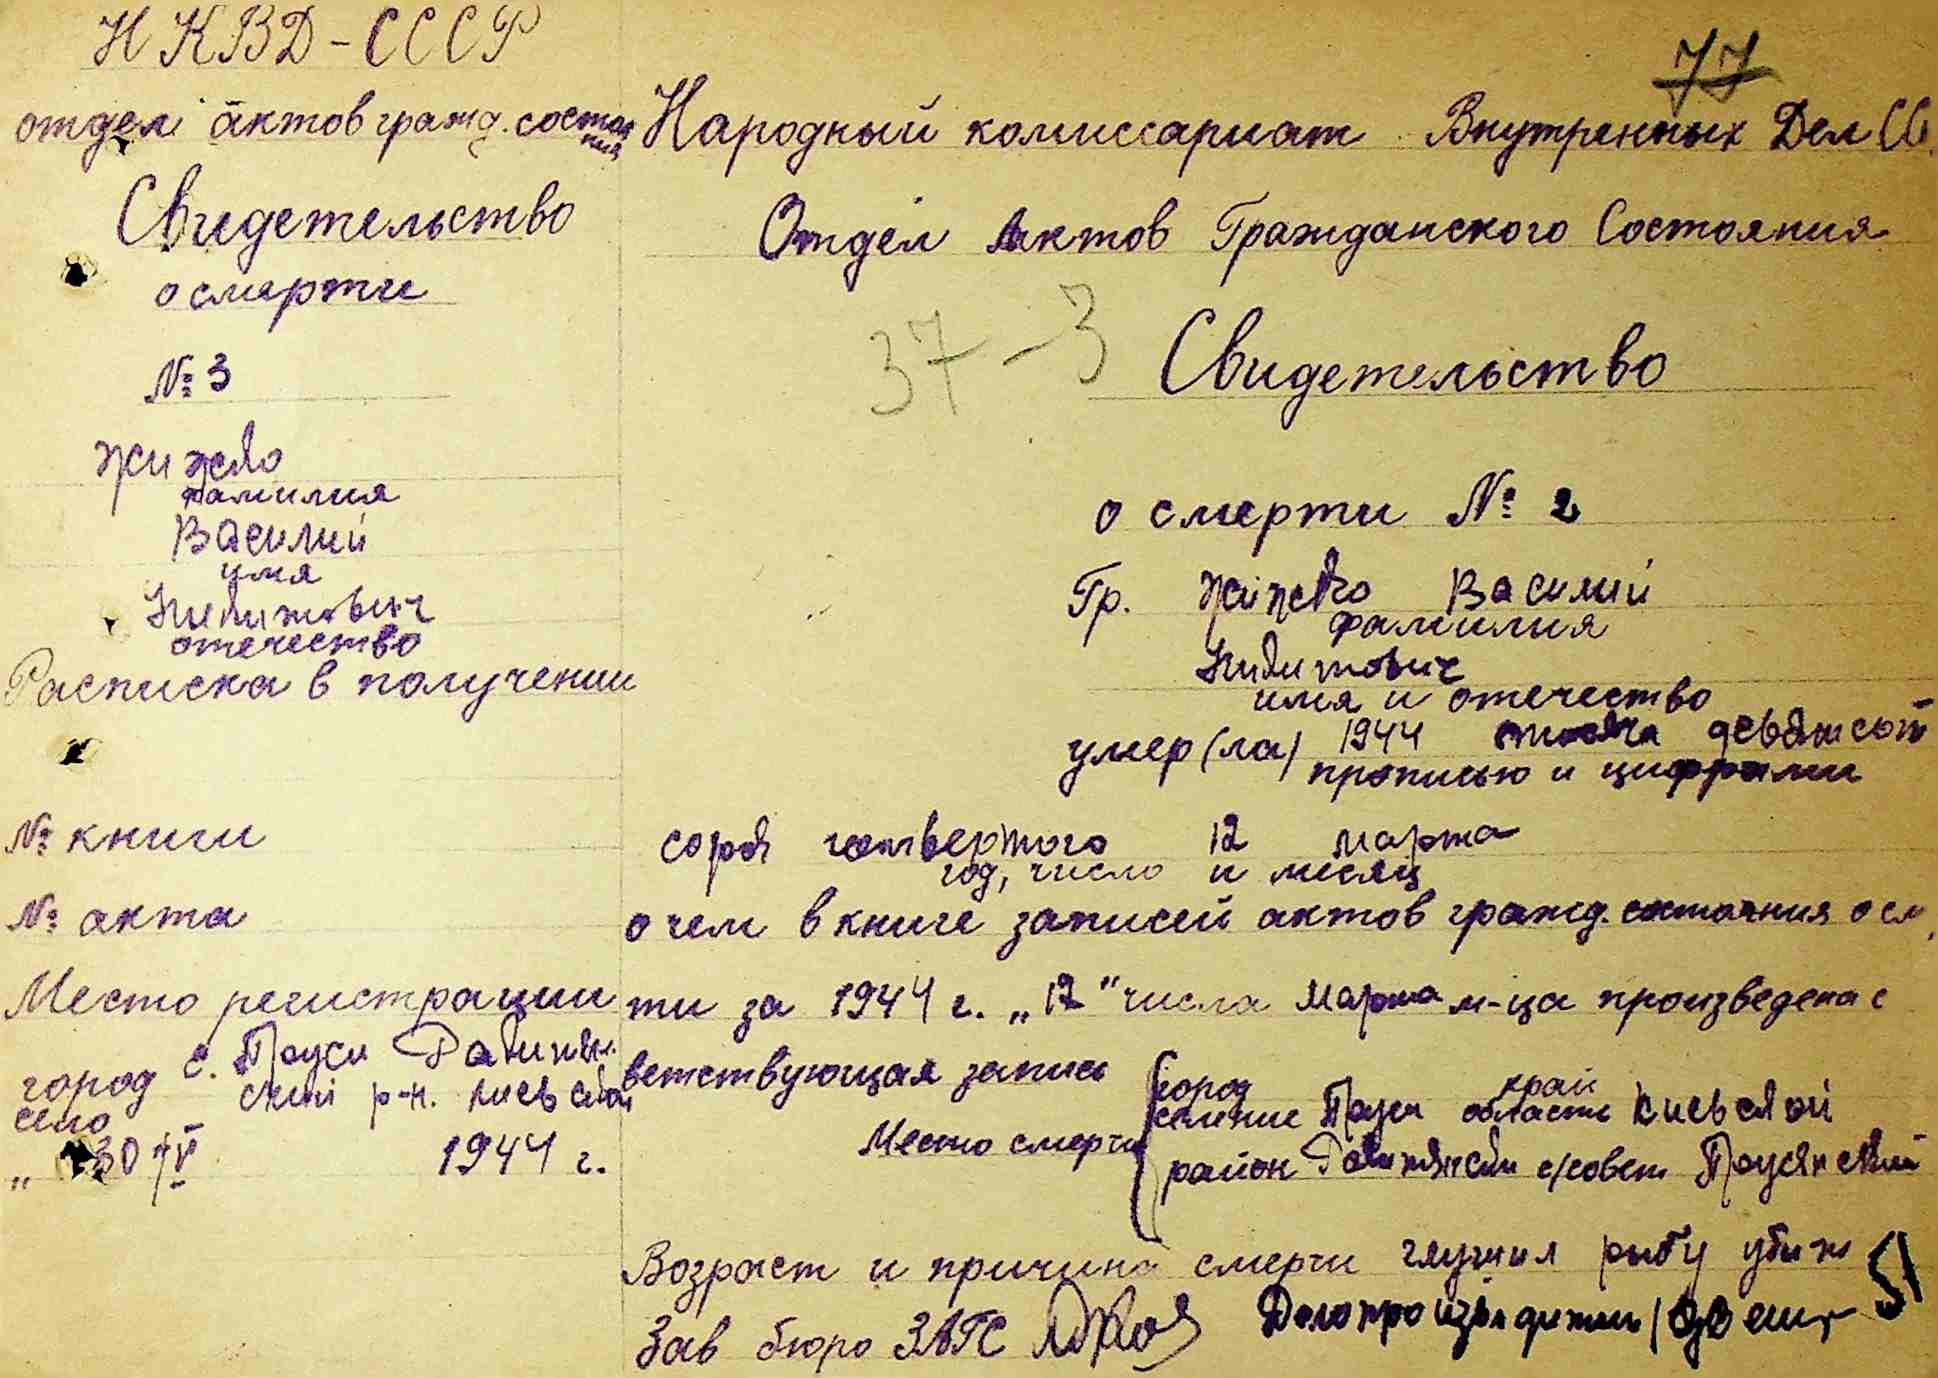 НКВД-СССР
отдел актов гражд. состоя
ния
Свидетельство
о смерти
№ 3
Жижко
фамилия
Василий
имя
Никитович
отечество
Расписка в получении
№ книги
№ акта
Место регистрации
город с. Пруси
село ский р-н. Киевской
„ 30 / IV 1944 г.
77
Народный комиссариат Внутренных Дел СС
Отдел Актов Гражданского Состояния
37-3
Свидетельство
о смерти № 2
Гр. Жижко Василий
фамилия
Никитович
имя и отечество
умер (ла) 1944 тисяча девятсот
прописью и цифрами
сорок четвертого 12 марта
год, число и месяц
о чем в книге записей актов гражд. состояния о см
ти за 1944 г. „12" числа марта м-ца произведена с
ветствующая запись
город край
селение Пруси область Киевской
Место смерти
район с/совет Прусянский
Возраст и причина смерти глушил рыбу убит
51
Зав бюро ЗАГС Делопроизводитель